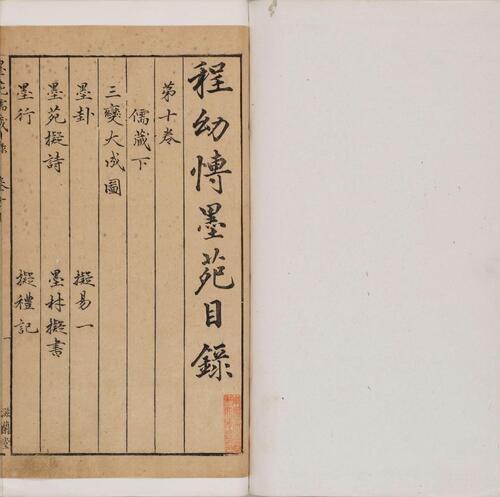 程幼博墨苑目錄
第十卷
儒藏下
三變大成圖
墨卦　擬易一
墨苑擬詩　墨林擬書
墨行　擬禮記
墨苑儒藏
滋蘭堂